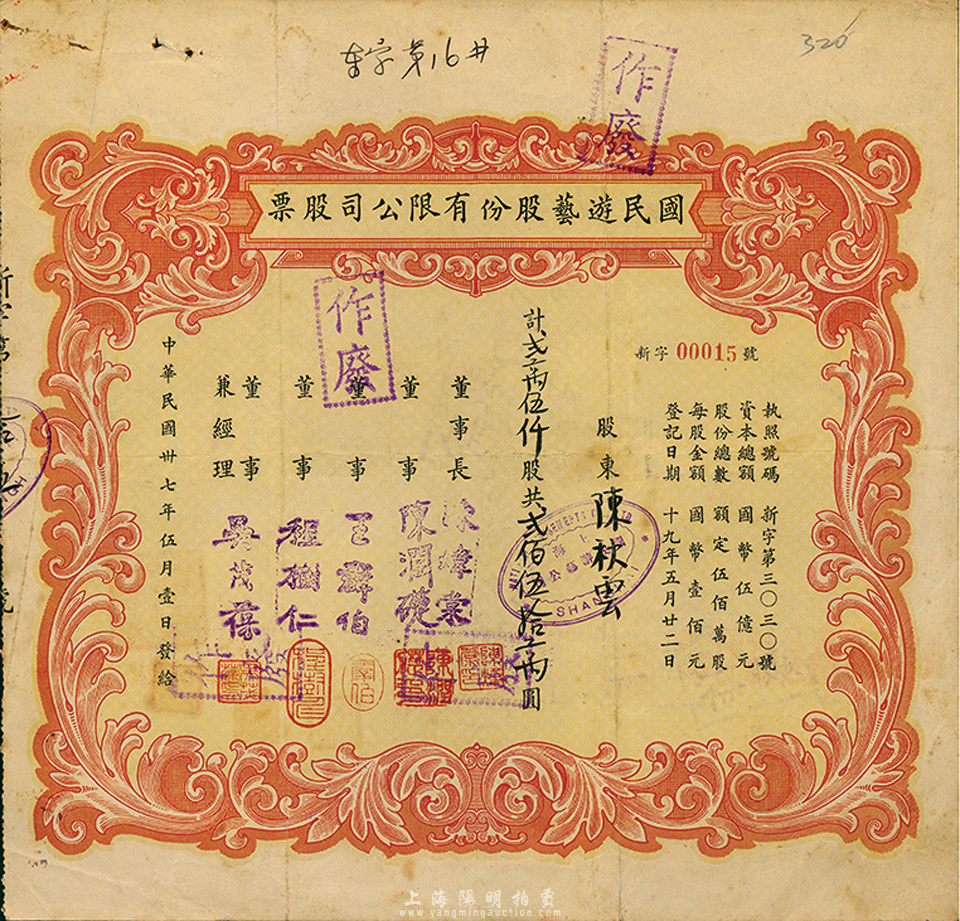 320
作廢
國民遊藝股份有限公司股票
新字 00015 號
執照號碼 新字第三〇三〇號
資本總額 國幣伍億元
股份總數 額定伍佰萬股
每股金額 國幣壹佰元
登記日期 十九年五月廿二日
股東 陳秋雲
計貳萬伍仟股共貳佰伍拾萬圓
SHANGHAI
董事長
董事 陳潤
董事 王 伯
董事 程樹仁
董事兼經理 吳茂葆
作廢
中華民國卅七年伍月壹日發給
上海陽明拍賣
www.yangmingauction.com